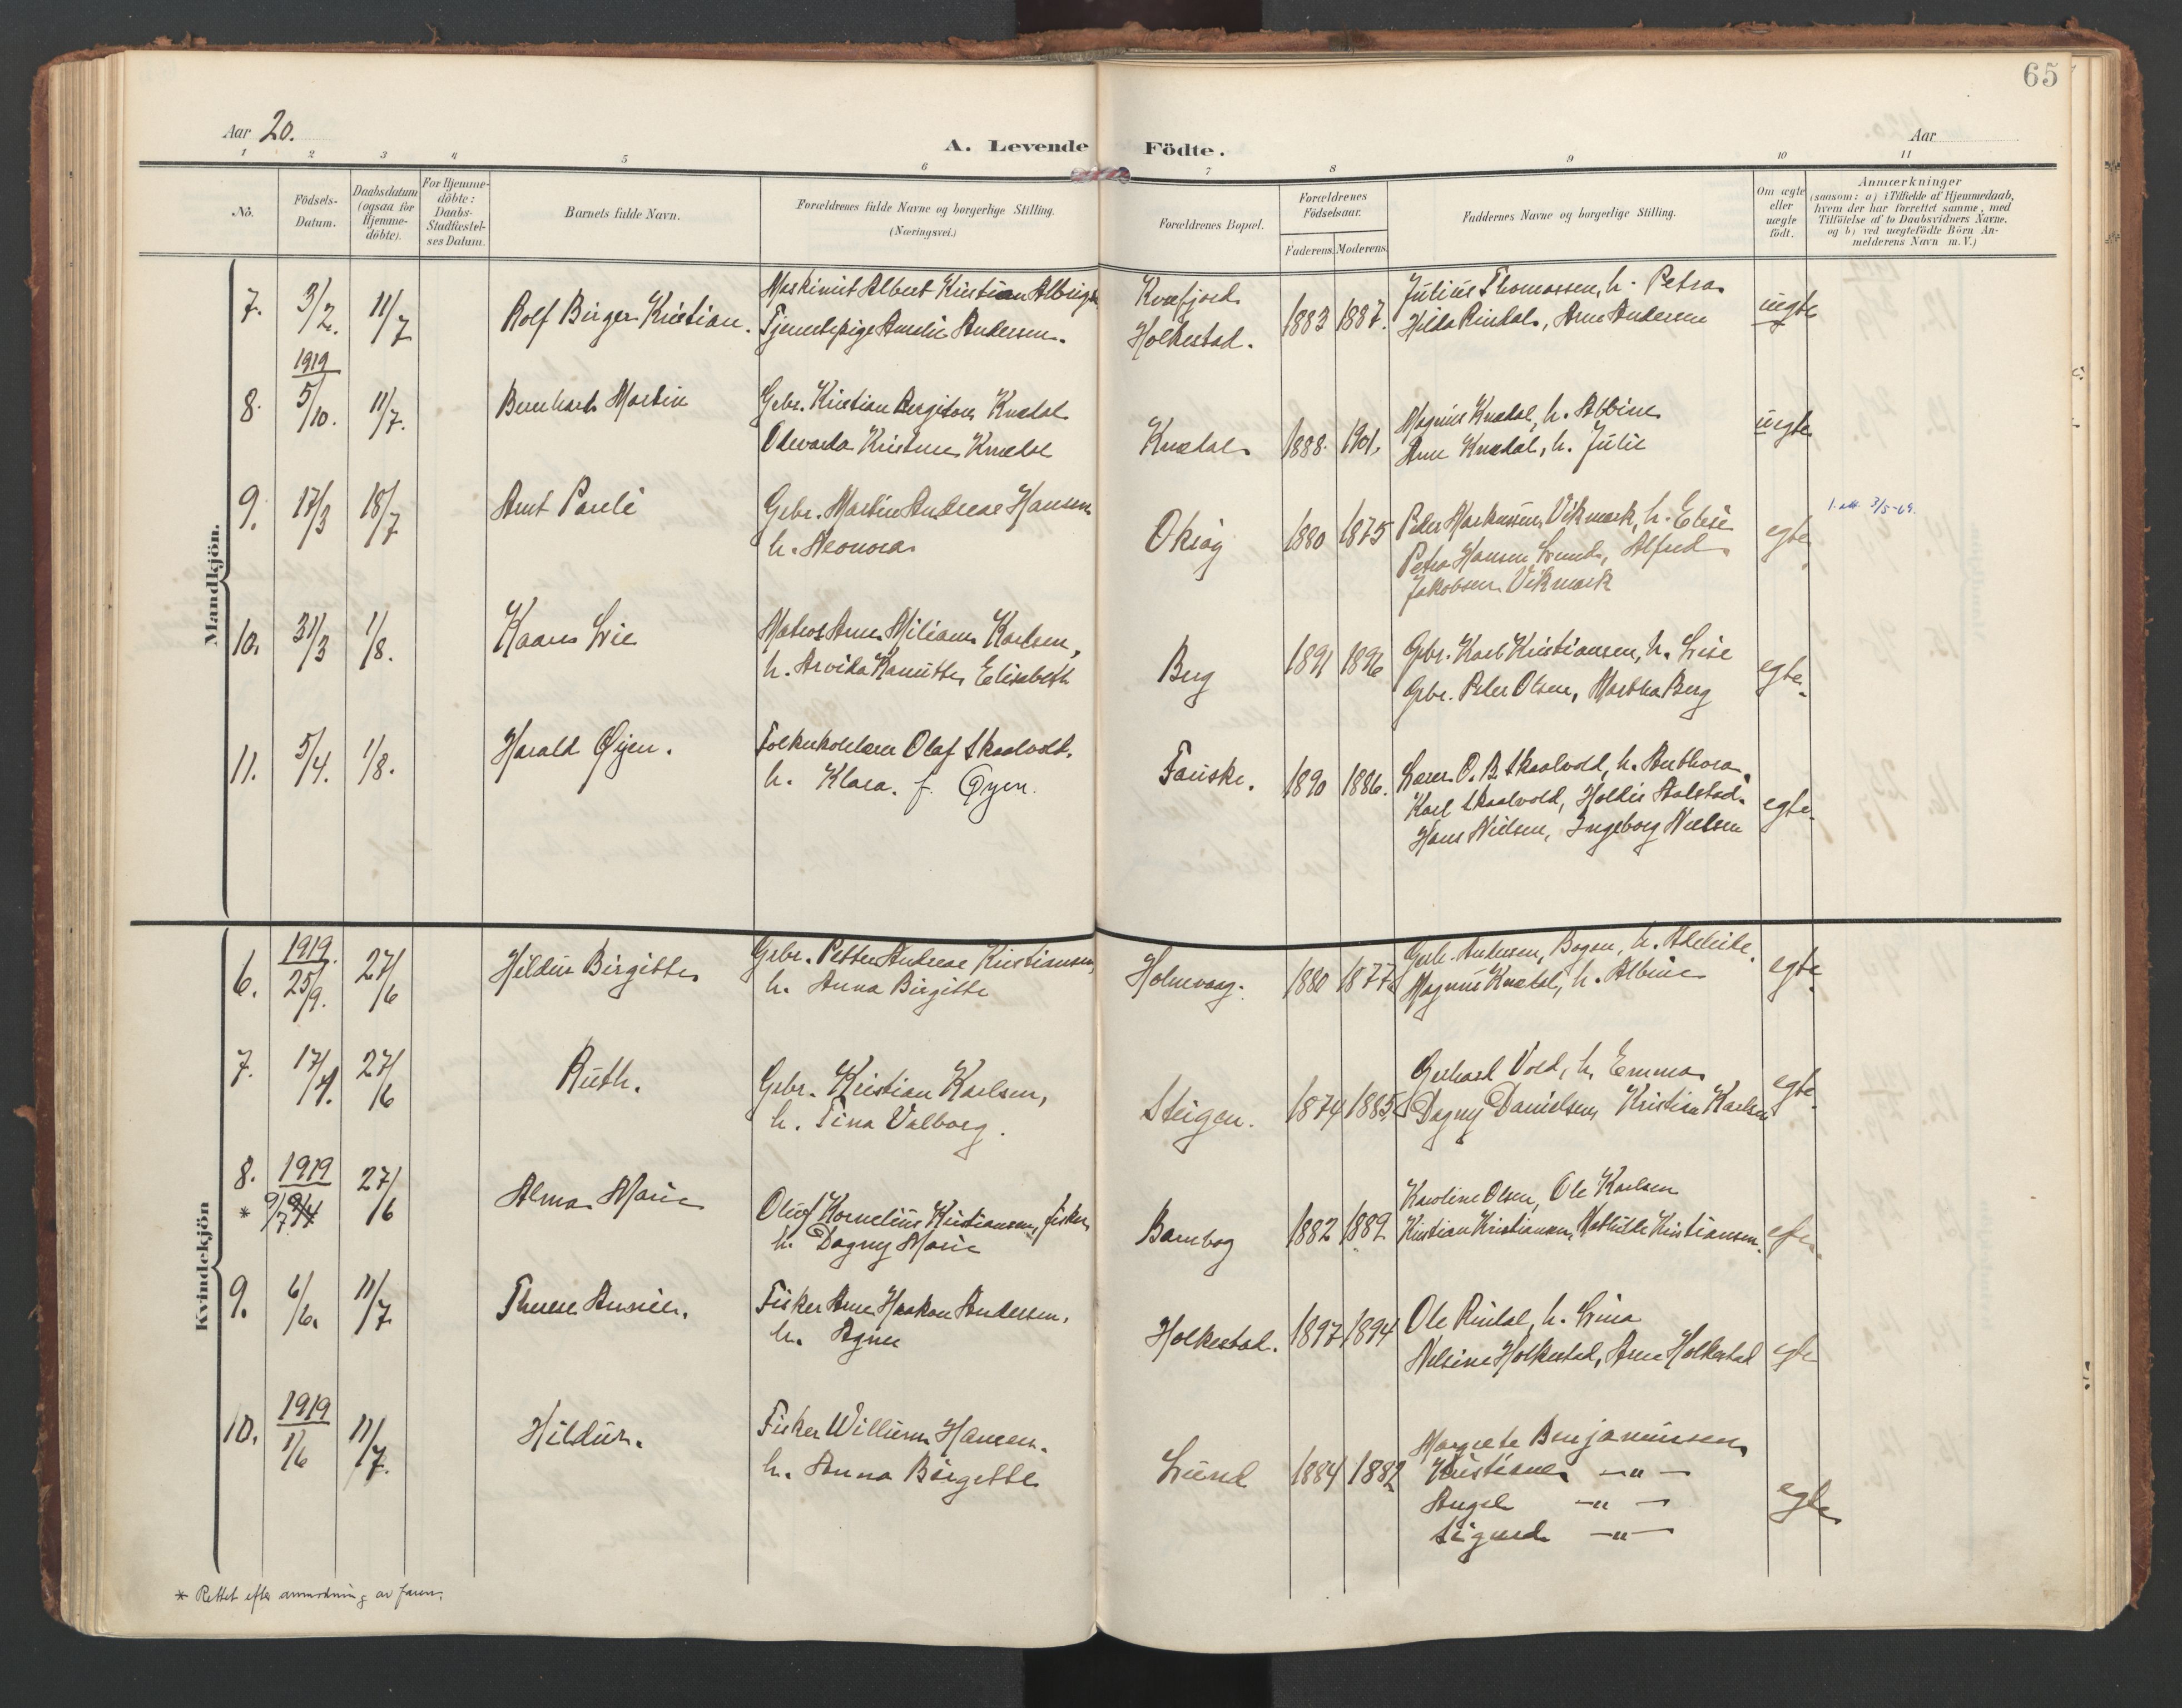 65
Aar 20.
A. Levende Födte.
Aar
1 2 3 4 5 6 7 8 9 10 11
No.
Födsels-Datum.
Daabsdatum (ogsaa for Hjemme-döbte).
For Hjemme-döbte: Daabs-Stadfæstel-ses Datum.
Barnets fulde Navn.
Forældrenes fulde Navne og borgerlige Stilling.
(Næringsvei.)
Forældrenes Bopæl.
Forældrenes Födselsaar.
Faderens. Moderens.
Faddernes Navne og borgerlige Stilling.
Om ægte eller uægte födt.
Anmærkninger
(saasom: a) i Tilfælde af Hjemmedaab,
hvem der har forrettet samme, med
Tilföielse af to Daabsvidners Navne,
og b) ved uægtefödte Börn An-
melderens Navn m. V.)
Mandkjön.
7. 3/2. 11/7 Rolf Birger Kristian. Maskinist Albert Kristian
Tjenestepige Amelie Andersen.
Kvæfjord
Holkestad. 1883 1887. Julius Thomassen, h. Petra
Hilda Rindal, Arne Andersen uegte
8. 1919
5/10. 11/7. Bernhard Martin Gbr. Kristian Knædal
Odvarda Kristine Knædal
Knædal 1888. 1901. Magnus Knædal, h. Albine
Arne Knædal, h. Julie uegte
9. 17/3 18/7 Arnt Pauli Gbr. Martin Andreas Hansen
h. Leonora
Okiøy 1880 1875 Peder Markussen Vikmark, h. Elise
Petra Hansen Lund, Alfred
Jakobsen Vikmark egte
3/5-69.
10. 31/3 1/8. Kaare Lie Matros Arne Miliam Karlsen,
h. Arvida Elisabeth
Berg 1891 1896 Gbr. Karl Kristiansen, h. Lise
Gbr. Peder Olsen, Martha Berg egte.
11. 5/4. 1/8. Harald Øyen. Folkeskolelærer Olaf Skaalvold,
h. Klara. f. Øyen.
Fauske. 1890 1886. Lærer O. B. Skaalvold, h. Anthora.
Karl Skaalvold, Holdis Aalstad.
Hans Nielsen, Ingeborg Nielsen egte.
Kvindekjön
6. 1919.
25/9. 27/6 Hildur Birgitte Gbr. Petter Andreas Kristiansen,
h. Anna Birgitte
Holmvaag. 1880 1877 Andersen, Bogen, h.
Magnus Knædal, h. Albine egte
7. 17/4. 27/6 Ruth. Gbr. Kristian Karlsen,
h. Tina Valborg.
Steigen. 1874 1885 Gerhard Vold, h. Emma
Dagny Danielsen, Kristian Karlsen egte.
8. 1919
* 9/7 27/6 Alma Marie Oluf Kornelius Kristiansen, fisker,
h. Dagny Marie
Bambog 1882 1889 Karoline Olsen, Ole Karlsen
Kristian Kristiansen, Mathilde Kristiansen.
9. 6/6. 11/7 Therese Fisker Arne Haakon Andersen.
h. Agnes
Holkestad. 1897 1894 Ole Rindal, h. Lina
Nelsine Holkestad, Arne Holkestad egte
10. 1919
1/6 11/7. Hildur. Fisker William Hansen.
h. Anna Birgitte
Lund 1884 1882 Margrete Benjaminsen
Kristiane — " —
Angel — " —
Sigurd — " — egte
* Rettet efter anmodning av faren.